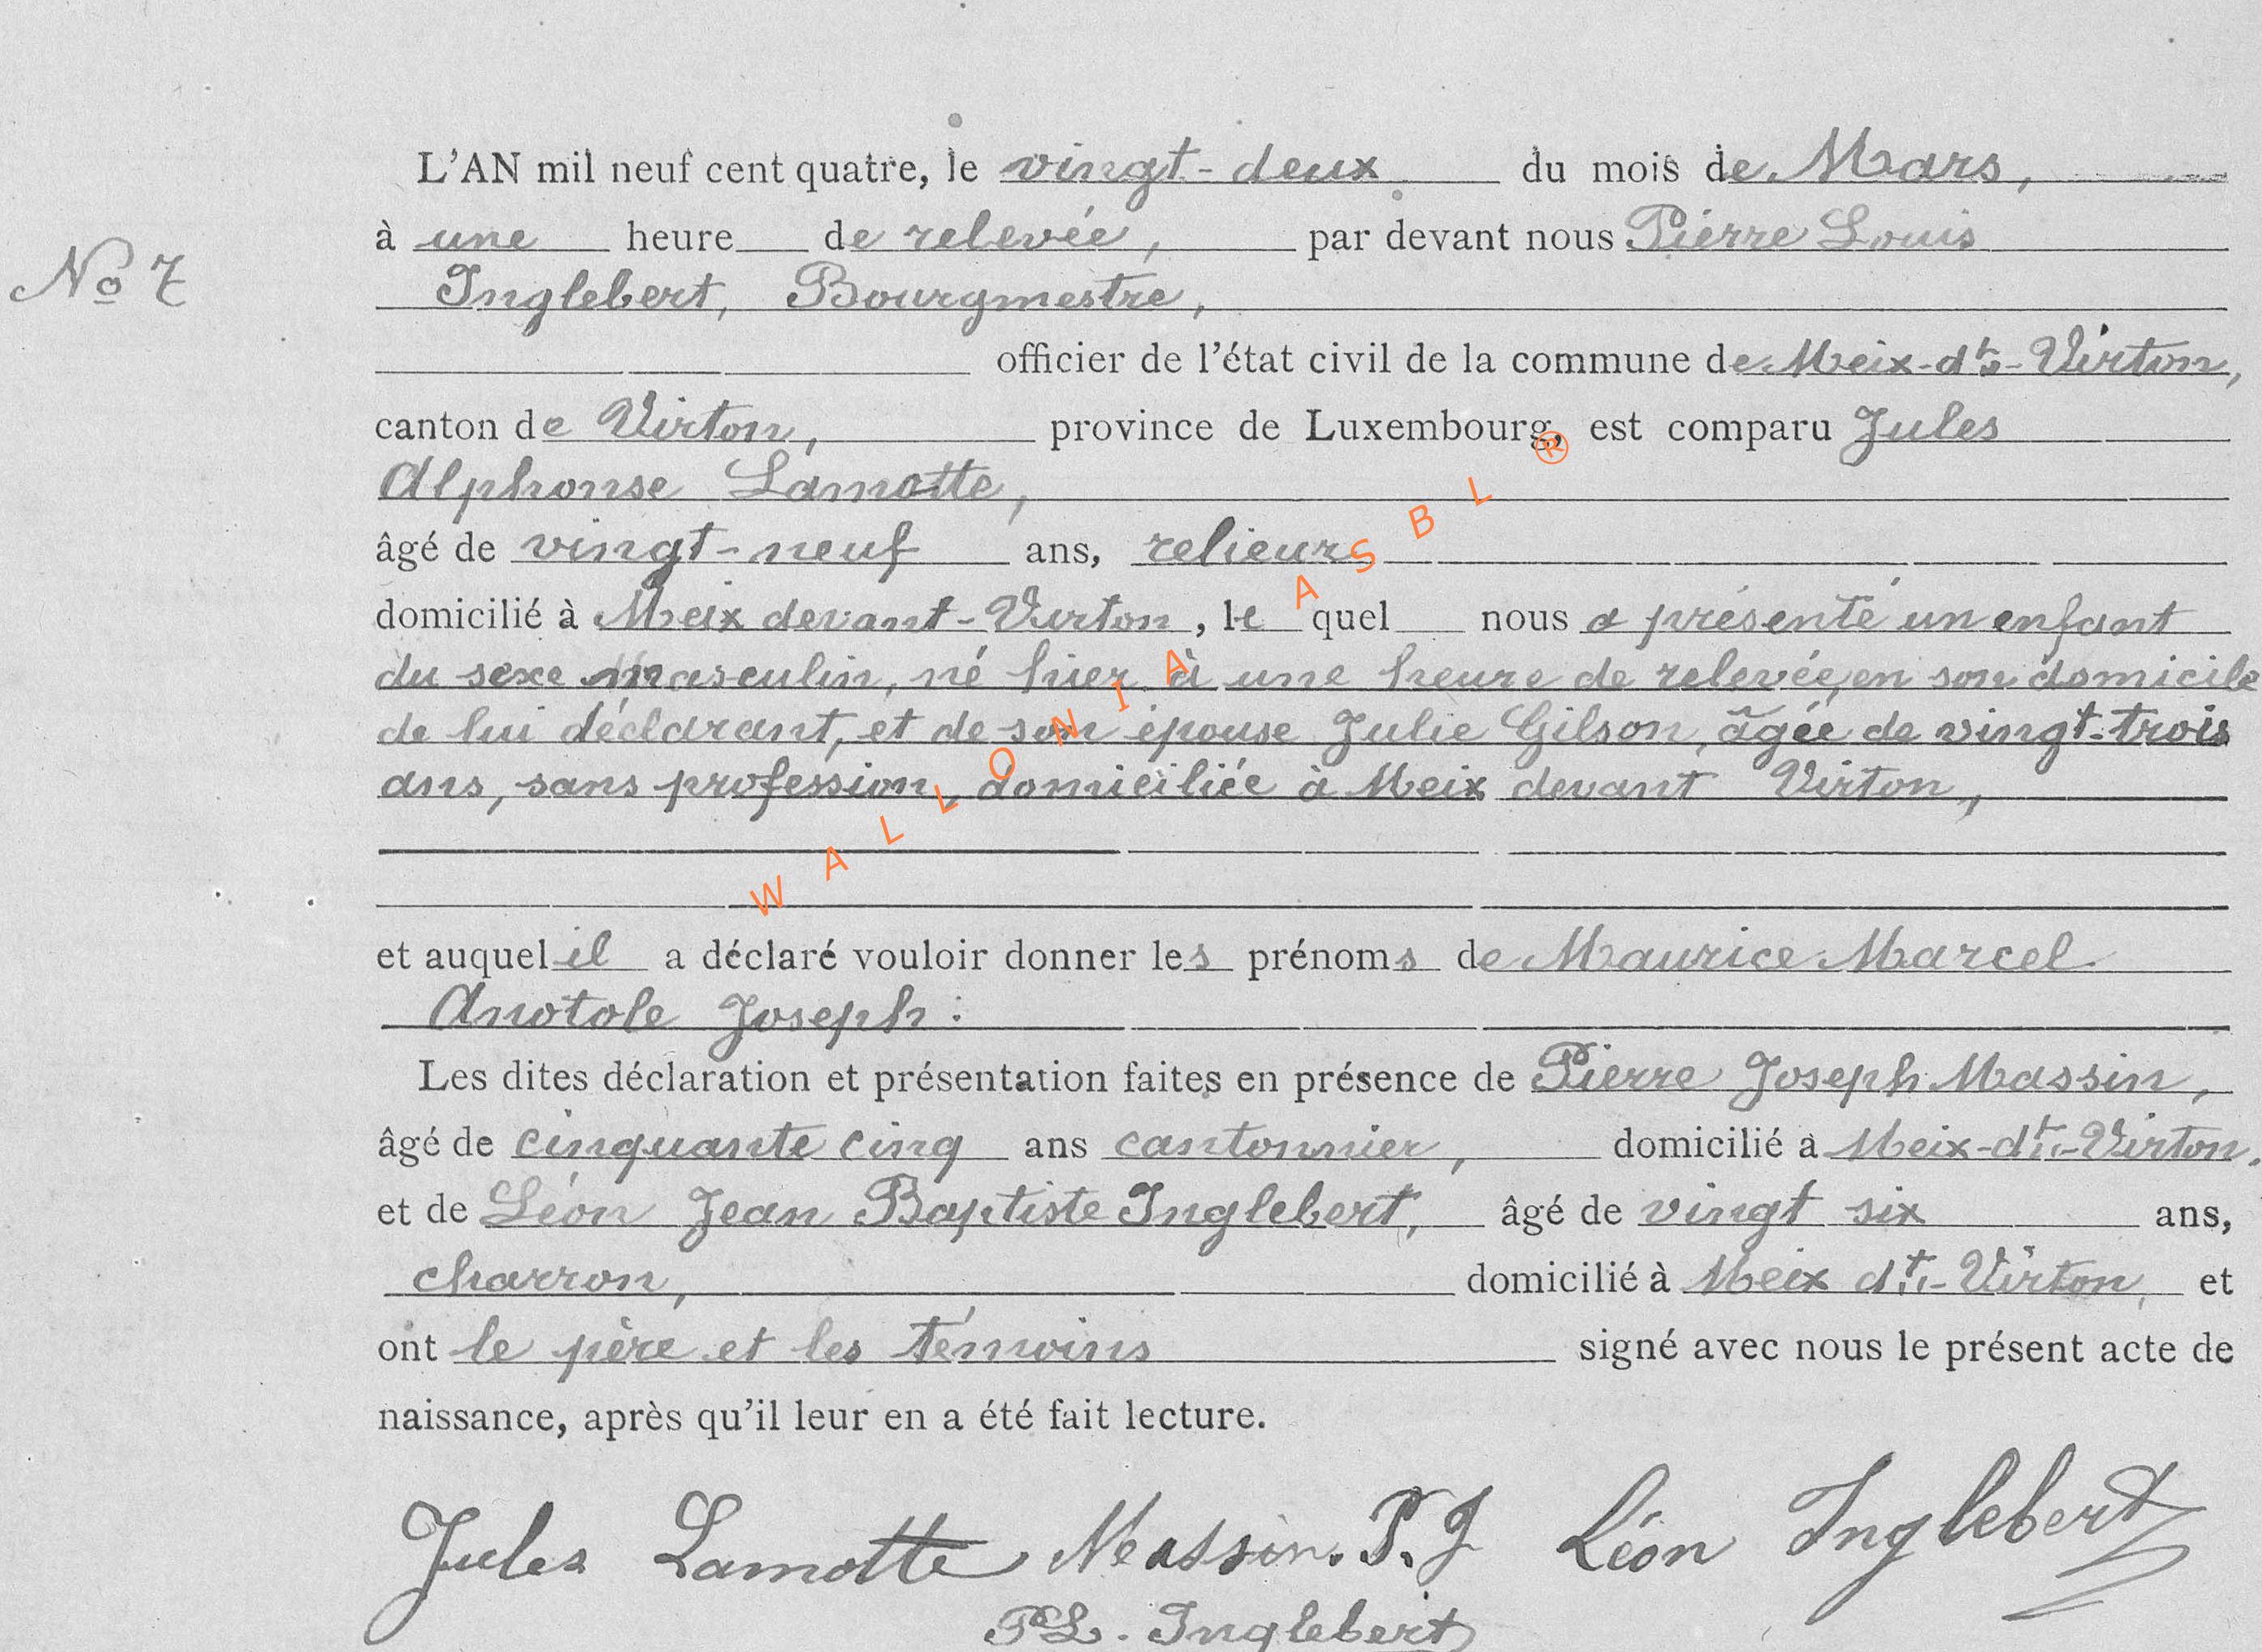 L'AN mil neuf cent quatre, le vingt-deux du mois de Mars,
à une heure de relevée, par devant nous Pierre Louis
No 7
Inglebert, Bourgmestre,
officier de l'état civil de la commune de Meix-dt-Virton,
canton de Virton, province de Luxembourg, est comparu Jules
Alphonse Lamotte,
âgé de vingt-neuf ans, relieur
domicilié à Meix devant-Virton, le quel nous a présenté un enfant
du sexe masculin, né hier à une heure de relevée, en son domicile
de lui déclarant, et de son épouse Julie Gilson, âgée de vingt-trois
ans, sans profession, domiciliée à Meix devant Virton,
et auquel il a déclaré vouloir donner les prénoms de Maurice Marcel
Anotole Joseph :
Les dites déclaration et présentation faites en présence de Pierre Joseph Massin,
âgé de cinquante cinq ans cantonnier, domicilié à Meix-dt-Virton,
et de Léon Jean Baptiste Inglebert, âgé de vingt six ans,
charron, domicilié à Meix dt-Virton, et
ont le père et les témoins signé avec nous le présent acte de
naissance, après qu'il leur en a été fait lecture.
Jules Lamotte Massin. P. J Léon Inglebert
PL. Inglebert
WALLONIA ASBL ®